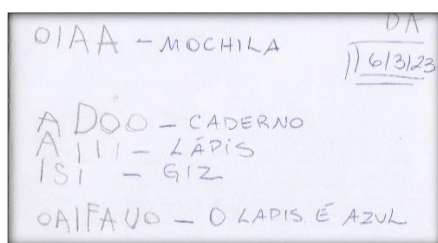 DA
OIAA - MOCHILA
6/3/23
ADOO - CADERNO
AIII - LÁPIS
ISI - GIZ
OAIFAUO - O LAPIS É AZUL